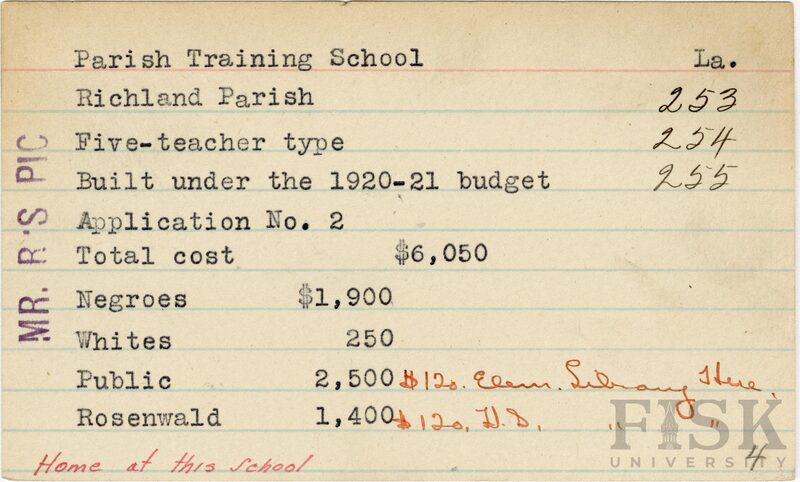 Parish Training School La.
Richland Parish 253
Five-teacher type 254
Built under the 1920-21 budget 255
Application No. 2
Total cost $6,050
Negroes $1,900
Whites 250
Public 2,500 $120. Elem. Library Here.
Rosenwald 1,400 $120, H.S. " "
Home at this School
4
MR. R'S PIC
FISK
UNIVERSITY